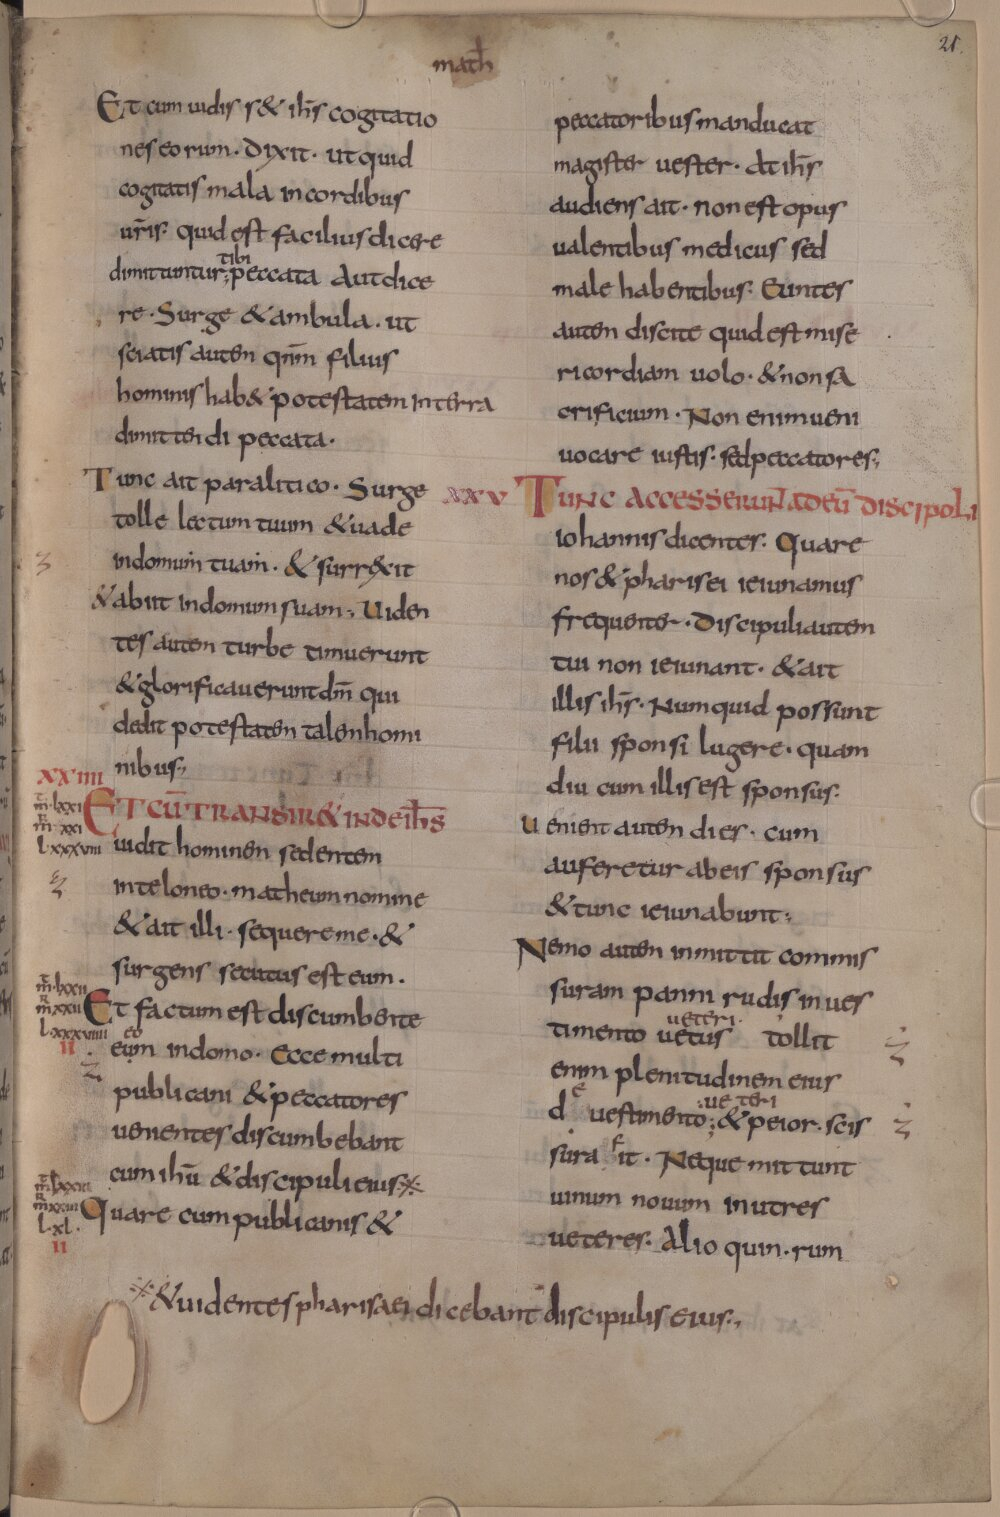 21.
math
Et cum uidisset ihs cogitatio
nes eorum. dixit. ut quid
cogitatis mala in cordibus
uris. quid est facilius dicere
tibi
dimittuntur peccata Aut dice
re. Surge & ambula. ut
sciatis autem qnm filius
hominis hab& potestatem in terra
dimittendi peccata.
Tunc ait paralitico. Surge
tolle lectum tuum & uade
in domum tuam. & surrexit
& abiit in domum suam; Uiden
tes autem turbe timuerunt
& glorificauerunt dm qui
dedit potestatem talem homi
nibus;
XXIIII
Et cū transir& inde ihs
m lxxi
m xxi
l xxxviii
uidit hominem sedentem
in teloneo. matheum nomine
& ait illi. sequere me. &
surgens secutus est eum.
m lxxii
m xxii
l xxxviiii
II
Et factum est discumbente
eo
eum in domo. Ecce multi
publicani & peccatores
uenientes discumbebant
cum ihu & discipuli eius
l xl.
II
Quare cum publicanis &
& uidentes pharisaei dicebant discipulis eius.,
peccatoribus manducat
magister uester. At ihs
audiens ait. non est opus
ualentibus medicus sed
male habentibus. Euntes
autem discite quid est mise
ricordiam uolo. & non sa
crificium. Non enim ueni
uocare iustis. sed peccatores;
XXV Tunc accesserunt ad eū discipoli
iohannis dicentes. Quare
nos & pharisei ieiunamus
frequenter. Discipuli autem
tui non ieiunant. & ait
illis ihs. Numquid possunt
filii sponsi lugere. quam
diu cum illis est sponsus.
Uenient autem dies. cum
auferetur ab eis sponsus
& tunc ieiunabunt;
Nemo autem inmittit commis
suram panni rudis in ues
ueteri.
timento uetus tollit
enim plenitudinem eius
ueteri
de uestimento; & peior. scis
sura fit. Neque mittunt
uinum nouum in utres
ueteres. Alio quin. rum